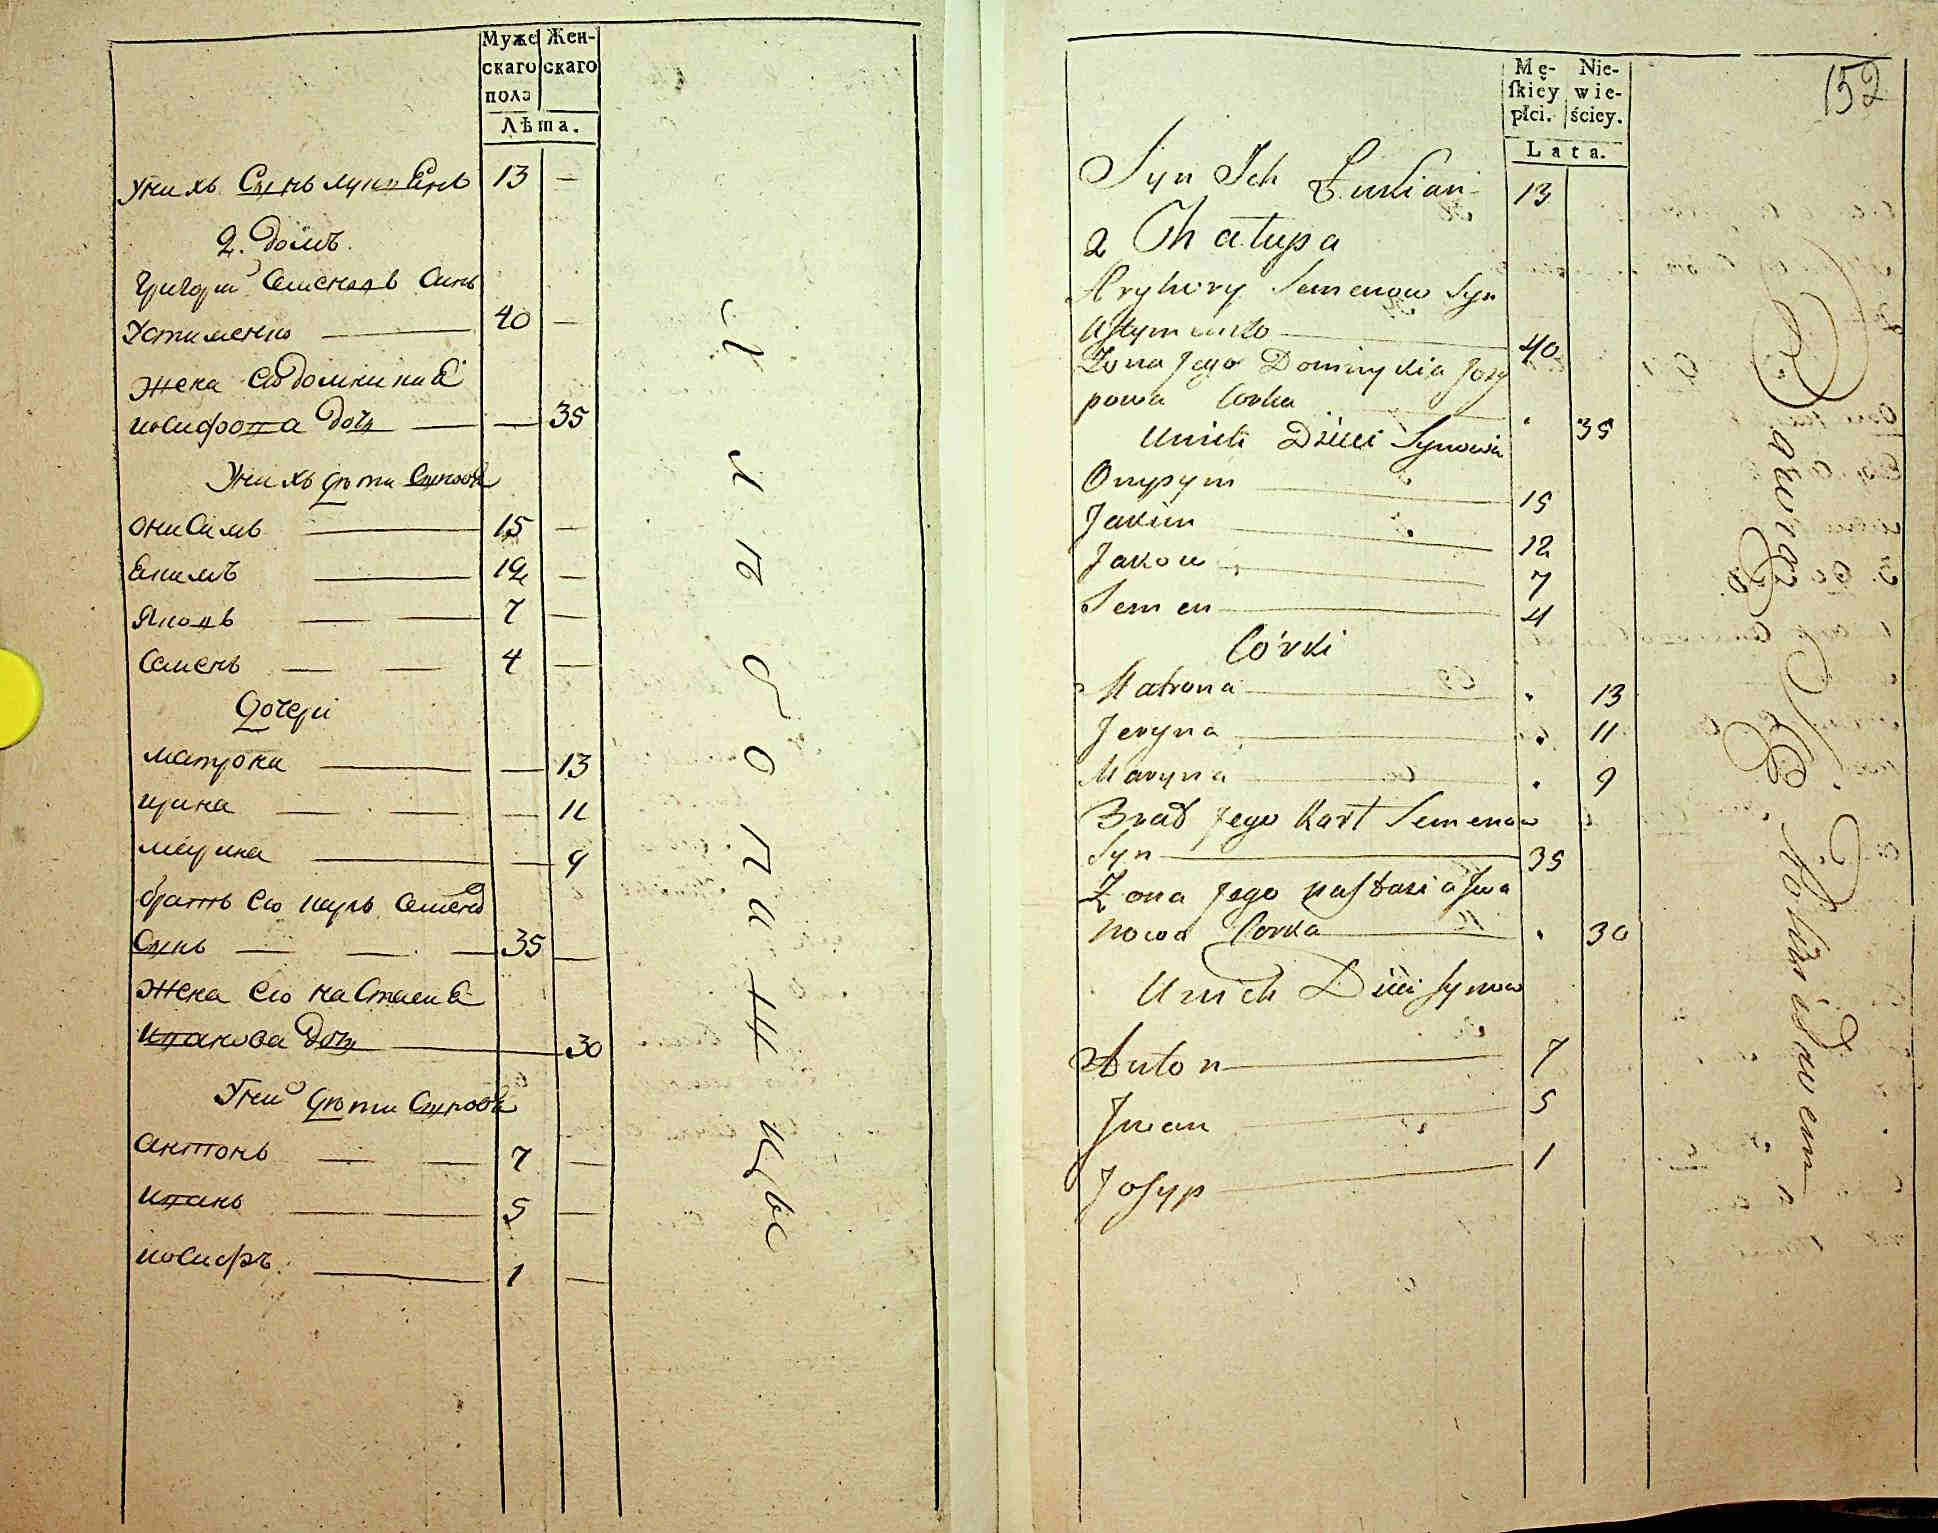 Муже Жен-
скаго скаго
пола
Лѣта.
У нихъ Сынъ лукиЕнъ 13 —
2. домъ.
Григорій Семеновъ Синъ
Устименко 40 —
Жена Его доминикиЕ
иосифова дочь — 35
У нихъ дѣти Сыновя
ониСимъ 15 —
Екимъ 12 —
Яковъ 7 —
Семенъ 4 —
Дочери
матрона — 13
ирина — 11
марина — 9
братъ Его карлъ Семеновъ
Сынъ 35 —
Жена Его наСтасиЕ
иванова дочь 30
У них дѣти Сыновя
антонъ 7 —
иванъ 5 —
иоСифъ 1 —
152
Mę- Nie-
ſkiéy wie-
płci. ściey.
Lata.
Syn Ich Łukian 13
2 Chałupa
Hryhory Semenow Syn
Ustymenko 40
Zona Jego Dominykia Josy
powa Corka 35
Unich Dzieci Synowie
Onysym 15
Jakim 12
Jakow 7
Semen 4
Córki
Matrona 13
Jeryna 11
Maryna 9
Brat Jego Karł Semenow
Syn 35
Zona Jego nastasia Jwa
nowa Corka 30
Unich Dzieci Synow
Anton 7
Jwan 5
Josyp 1